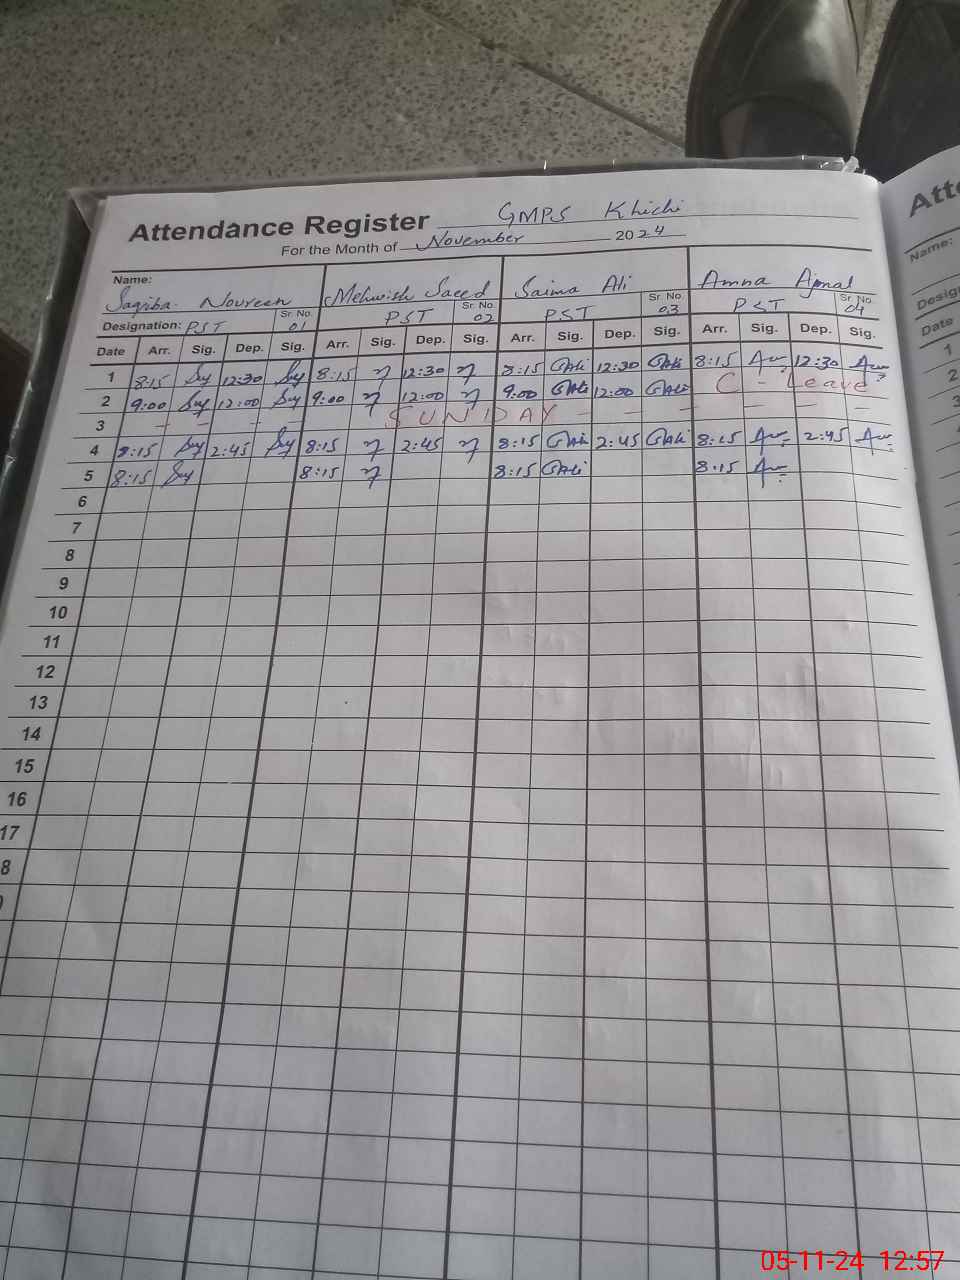 Attendance Register GMPS Khichi
For the Month of November 2024
Name:
Saqiba Noureen Mehwish Saeed Saima Ali Amna Ajmal
Designation: PST Sr. No. 01 PST Sr. No. 02 PST Sr. No. 03 PST Sr. No. 04
Date Arr. Sig. Dep. Sig. Arr. Sig. Dep. Sig. Arr. Sig. Dep. Sig. Arr. Sig. Dep. Sig.
1 8:15 12:30 8:15 12:30 8:15 GAli 12:30 GAli 8:15 12:30
2 9:00 12:00 9:00 12:00 9:00 GAli 12:00 GAli C - Leave
3 - - - - SUNDAY - - - - - -
4 8:15 2:45 8:15 2:45 8:15 GAli 2:45 GAli 8:15 2:45
5 8:15 8:15 8:15 GAli 8:15
6
7
8
9
10
11
12
13
14
15
16
17
8
Att
Name:
Design
Date
1
2
3
4
5
05-11-24 12:57